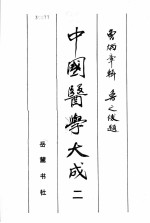 曹炳章輯 魯之俊題
中國醫學大成 二
岳麓书社